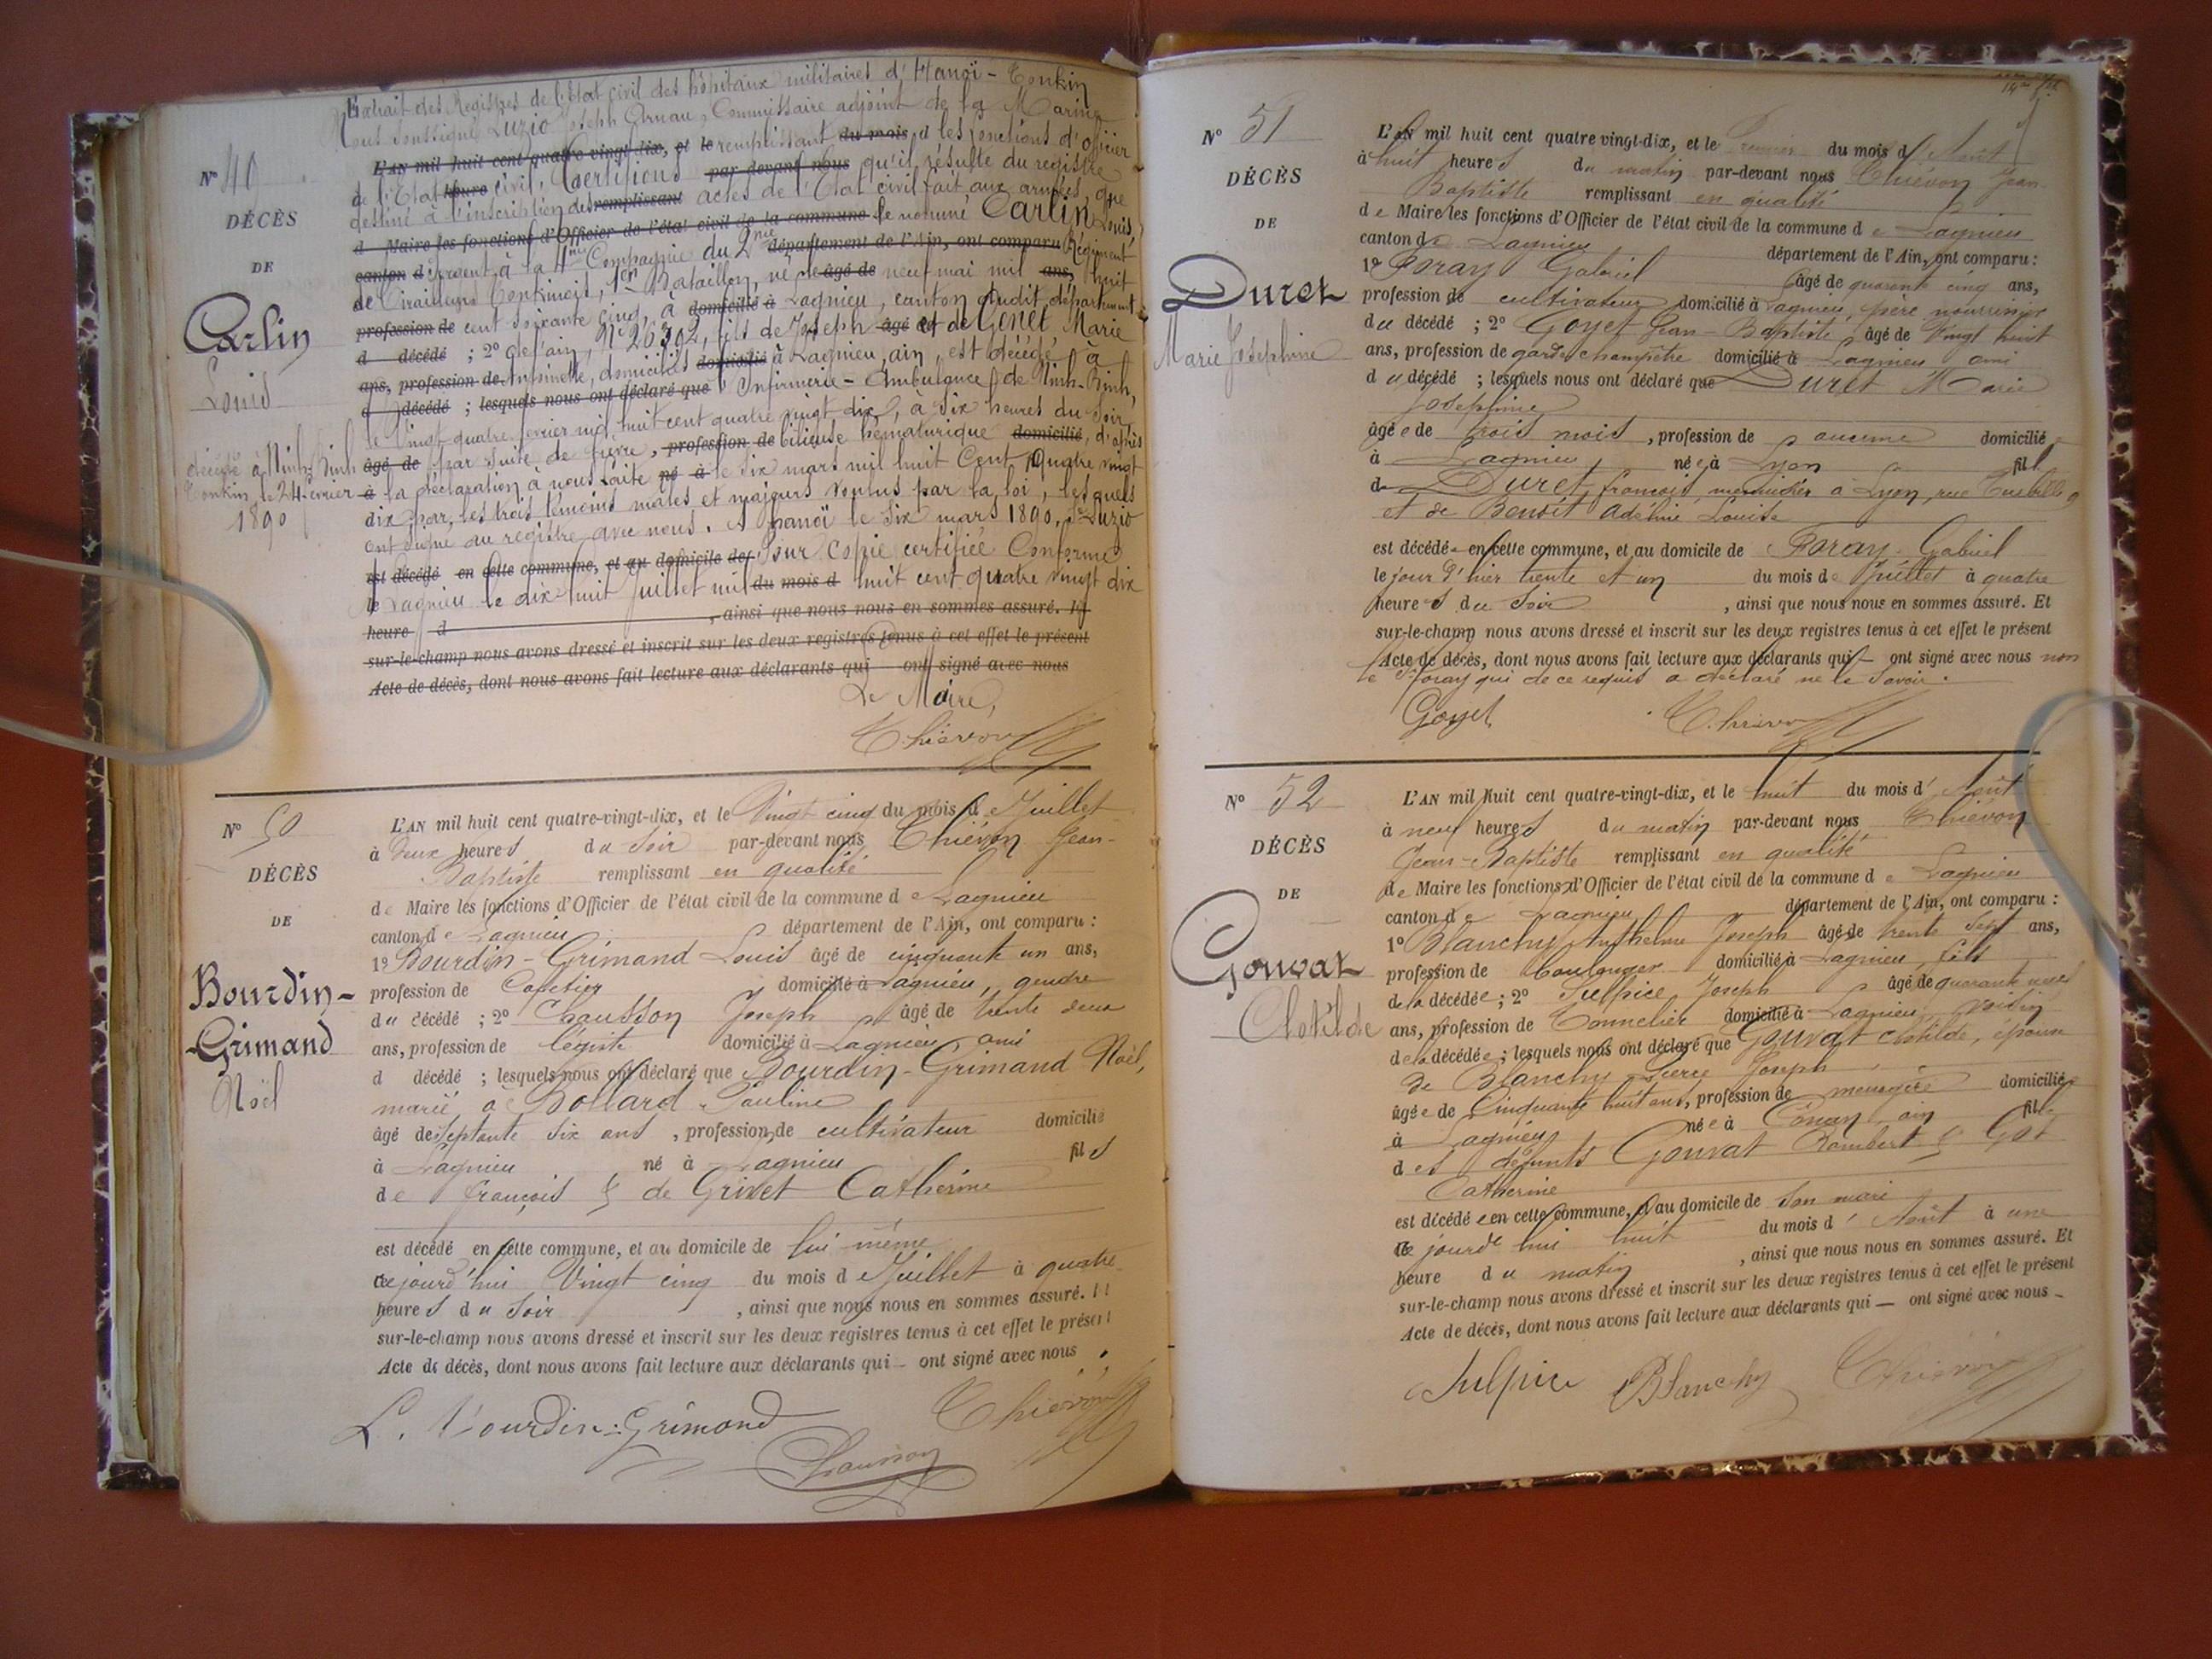 Extrait des Registres de l'Etat civil des hôpitaux militaires d'Hanoï - Tonkin
Nous soussigné Luzio Joseph Arnau, Commissaire adjoint de la Marine
L'AN mil huit cent quatre-vingt-dix, et le remplissant du mois d les fonctions d'officier
de l'Etat heure civil, Certifions par-devant nous qu'il résulte du registre
destiné à l'inscription des remplissant actes de l'Etat civil fait aux armées, que
d Maire les fonctions d'Officier de l'état civil de la commune le nommé Carlin Louis,
canton d Sergent à la 4me Compagnie du 2me département de l'Ain, ont comparu Régiment
de Tirailleurs Tonkinois, 1er Bataillon, né le âgé de neuf mai mil ans, huit
profession de cent soixante cinq, à domicilié à Lagnieu, canton dudit, département
d décédé ; 2° de l'ain, No 26392, fils de Joseph âgé et de Genet Marie
ans, profession de Antoinette, domiciliés domicilié à Lagnieu, ain, est décédé à
d décédé ; lesquels nous ont déclaré que l'Infirmerie - Ambulance de Ninh-Binh,
le Vingt quatre février mil huit cent quatre vingt dix, à six heures du soir,
âgé de par suite de fièvre, profession de bilieuse hématurique domicilié, d'après
à la déclaration à nous faite né à le six mars mil huit Cent Quatre vingt
dix par, les trois témoins mâles et majeurs voulus par la loi, lesquels
ont signé au registre avec nous. A hanoï le six mars 1890. Sé Luzio
est décédé en cette commune, et au domicile de Pour Copie certifiée Conforme
le Lagnieu le dix-huit Juillet mil du mois d huit cent quatre vingt dix
heure d , ainsi que nous nous en sommes assuré. Et
sur-le-champ nous avons dressé et inscrit sur les deux registres tenus à cet effet le présent
Acte de décès, dont nous avons fait lecture aux déclarants qui ont signé avec nous
Le Maire,
Thiévon
N° 49
DÉCÈS
DE
Carlin
Louis
décédé à Ninh-Binh
Tonkin, le 24 février
1890
N° 50
DÉCÈS
DE
Bourdin-
Grimand
Noël
L'AN mil huit cent quatre-vingt-dix, et le Vingt cinq du mois de Juillet
à deux heures du soir par-devant nous Thiévon Jean-
Baptiste remplissant en qualité
de Maire les fonctions d'Officier de l'état civil de la commune de Lagnieu
canton de Lagnieu département de l'Ain, ont comparu :
1° Bourdin-Grimand Louis âgé de cinquante un ans,
profession de Cafetier domicilié à Lagnieu, gendre
du décédé ; 2° Chausson Joseph âgé de trente deux
ans, profession de domicilié à Lagnieu, ami
d décédé ; lesquels nous ont déclaré que Bourdin-Grimand Noël,
marié à Bollard Pauline
âgé de septante six ans, profession de cultivateur domicilié
à Lagnieu né à Lagnieu fils
de françois & de Grivet Catherine
est décédé en cette commune, et au domicile de lui-même
ce jourd'hui Vingt cinq du mois de Juillet à quatre
heures du soir , ainsi que nous nous en sommes assuré. Et
sur-le-champ nous avons dressé et inscrit sur les deux registres tenus à cet effet le présent
Acte de décès, dont nous avons fait lecture aux déclarants qui — ont signé avec nous.
L. Bourdin-Grimond Thiévon
Chausson
N° 51
DÉCÈS
DE
Duret
Marie Joséphine
L'AN mil huit cent quatre vingt-dix, et le Premier du mois d'Août
à huit heures du matin par-devant nous Thiévon Jean-
Baptiste remplissant en qualité
de Maire les fonctions d'Officier de l'état civil de la commune de Lagnieu
canton de Lagnieu département de l'Ain, ont comparu :
1° Foray Gabriel âgé de quarante cinq ans,
profession de cultivateur domicilié à Lagnieu, père nourricier
du décédé ; 2° Goyet Jean-Baptiste âgé de Vingt huit
ans, profession de garde champêtre domicilié à Lagnieu ami
du décédé ; lesquels nous ont déclaré que Duret Marie
Joséphine
âgée de trois mois, profession de aucune domicilié
à Lagnieu, née à Lyon fil
de Duret françois, menuisier à Lyon, rue
et de Benoit Adéline Louise
est décédée en cette commune, et au domicile de Foray Gabriel
le jour d'hier trente et un du mois de Juillet à quatre
heures du soir , ainsi que nous nous en sommes assuré. Et
sur-le-champ nous avons dressé et inscrit sur les deux registres tenus à cet effet le présent
Acte de décès, dont nous avons fait lecture aux déclarants qui — ont signé avec nous non
le Sr foray qui de ce requis a déclaré ne le savoir.
Goyet Thiévon
N° 52
DÉCÈS
DE
Gouvat
Clotilde
L'AN mil huit cent quatre-vingt-dix, et le huit du mois d'Août
à neuf heures du matin par-devant nous Thiévon
Jean-Baptiste remplissant en qualité
de Maire les fonctions d'Officier de l'état civil de la commune de Lagnieu
canton de Lagnieu département de l'Ain, ont comparu :
1° Blanchy Anthelme Joseph âgé de trente sept ans,
profession de boulanger domicilié à Lagnieu, fils
de la décédée ; 2° Sulpice Joseph âgé de quarante neuf
ans, profession de Tonnelier domicilié à Lagnieu, voisin
de la décédée ; lesquels nous ont déclaré que Gouvat Clotilde, épouse
de Blanchy Pierre Joseph
âgée de Cinquante huit ans, profession de ménagère domiciliée
à Lagnieu née à ain fil
des défunts Gouvat Rambert & Got
Catherine
est décédée en cette commune, et au domicile de son mari
ce jourd'hui huit du mois d'Août à une
heure du matin , ainsi que nous nous en sommes assuré. Et
sur-le-champ nous avons dressé et inscrit sur les deux registres tenus à cet effet le présent
Acte de décès, dont nous avons fait lecture aux déclarants qui — ont signé avec nous —
Sulpice Blanchy Thiévon